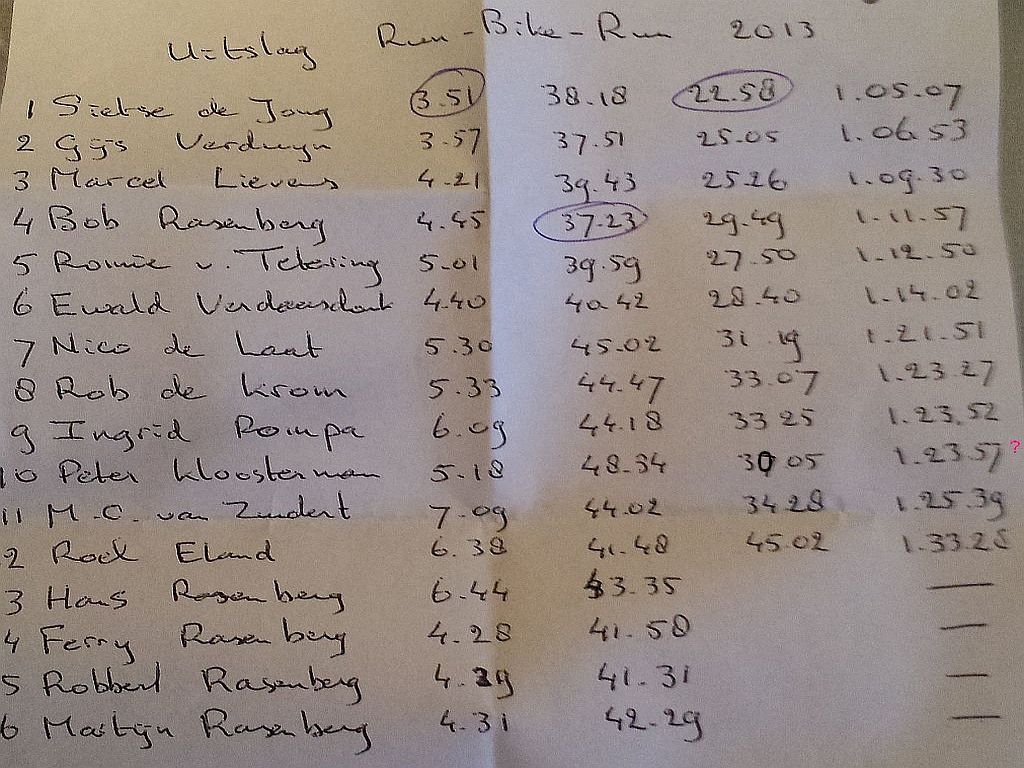 Uitslag Run-Bike-Run 2013
1 Sietse de Jong 3.51 38.18 22.58 1.05.07
2 Gijs Verduyn 3.57 37.51 25.05 1.06.53
3 Marcel Lievens 4.21 39.43 25.26 1.09.30
4 Bob Rasenberg 4.45 37.23 29.49 1.11.57
5 Romie v. Tetering 5.01 39.59 27.50 1.12.50
6 Ewald 4.40 40.42 28.40 1.14.02
7 Nico de Laat 5.30 45.02 31 19 1.21.51
8 Rob de Krom 5.33 44.47 33.07 1.23.27
9 Ingrid Rompa 6.09 44.18 33 25 1.23.52
10 Peter Kloosterman 5.18 48.34 30 05 1.23.57 ?
11 M.C. van Zundert 7.09 44.02 34.28 1.25.39
2 Roel Eland 6.38 41.48 45.02 1.33.28
3 Hans Rasenberg 6.44 43.35 —
4 Ferry Rasenberg 4.28 41.58 —
5 Robbert Rasenberg 4.29 41.31 —
6 Martijn Rasenberg 4.31 42.29 —